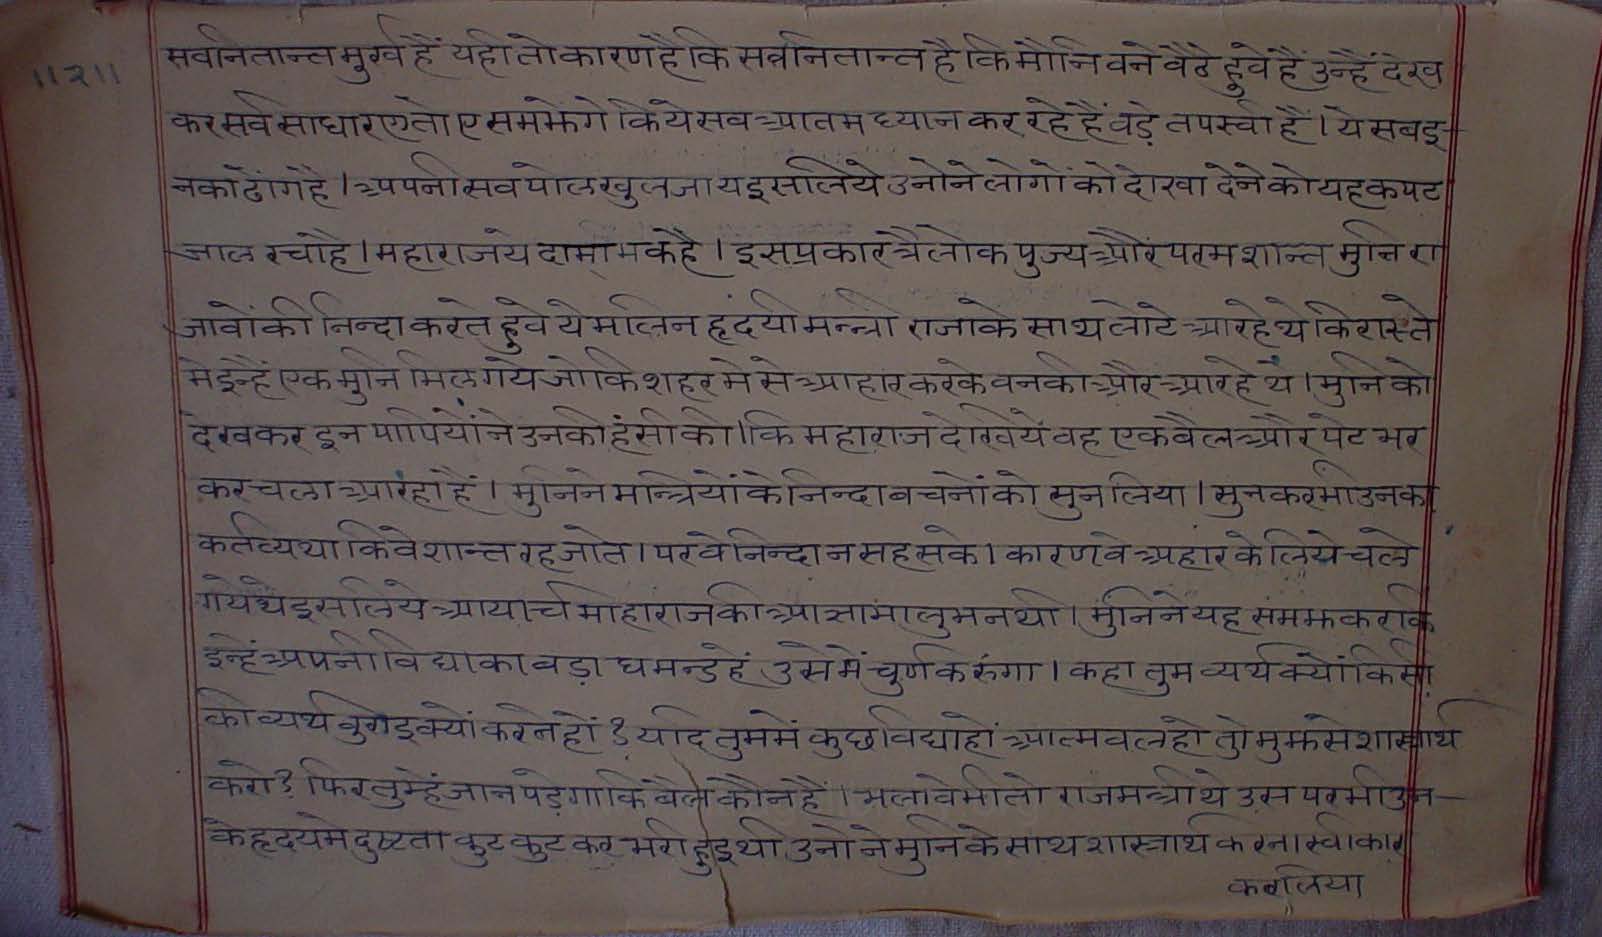 ॥२॥
सर्वनितान्त मुर्ख हैं यही तो कारण है कि सर्वनितान्त है कि मौनि वने वैठे हुवे हैं उन्हैं देख
कर सर्व साधारण तो ए समझेंगे कि ये सव आतम ध्यान कर रहे हैं वड़े तपस्वी हैं । ये सबइ-
नका ढोंग है । अपपनी सव पोल खुल जाय इसलिये उनोने लोगों को दोखा देने को यह कपट
जाल रचो है । महाराज ये दाम्भिक है । इस प्रकार त्रैलोक पुज्य और परम शान्त मुनि रा
जावों की निन्दा करते हुवे ये मलिन हृदयी मन्त्री राजा के साथ लोटे आ रहे थे कि रास्ते
मे इन्हैं एक मुनि मिल गये जो कि शहर मे से आहार करके वन की और आ रहे थे । मुनि को
देखकर इन पापियों ने उनकी हंसी की । कि महाराज देखिये वह एक बैल और पेट भर
कर चला आ रहा हैं । मुनि ने मन्त्रियों के निन्दा वचनों को सुन लिया । सुनकर भी उनका
कर्तव्य था कि वे शान्त रह जाते । पर वे निन्दा न सह सके । कारण वे अहार के लिये चले
गये थे इसलिये आयार्च माहाराज की आज्ञा मालुम न थी । मुनि ने यह संमझ कर कि
इन्हें अपनी विद्या का वड़ा घमन्ड हें उसे में चुर्ण करुंगा । कहा तुम व्यर्थ क्यों किसी
की व्यर्थ वुराइ क्यों करते हों ? यदि तुममें कुछ विद्या हों आत्मवल हो तो मुझसे शास्त्रार्थ
करो ? फिर तुम्हें जान पड़ेगा कि बैल कौन हैं । भला वे भी तो राजमन्त्री थे उस पर भी उन-
के हृदय मे दुष्टता कुट कुट कर भरी हुइ थी उनो ने मुनि के साथ शास्त्रार्थ करना स्वीकार
कर लिया